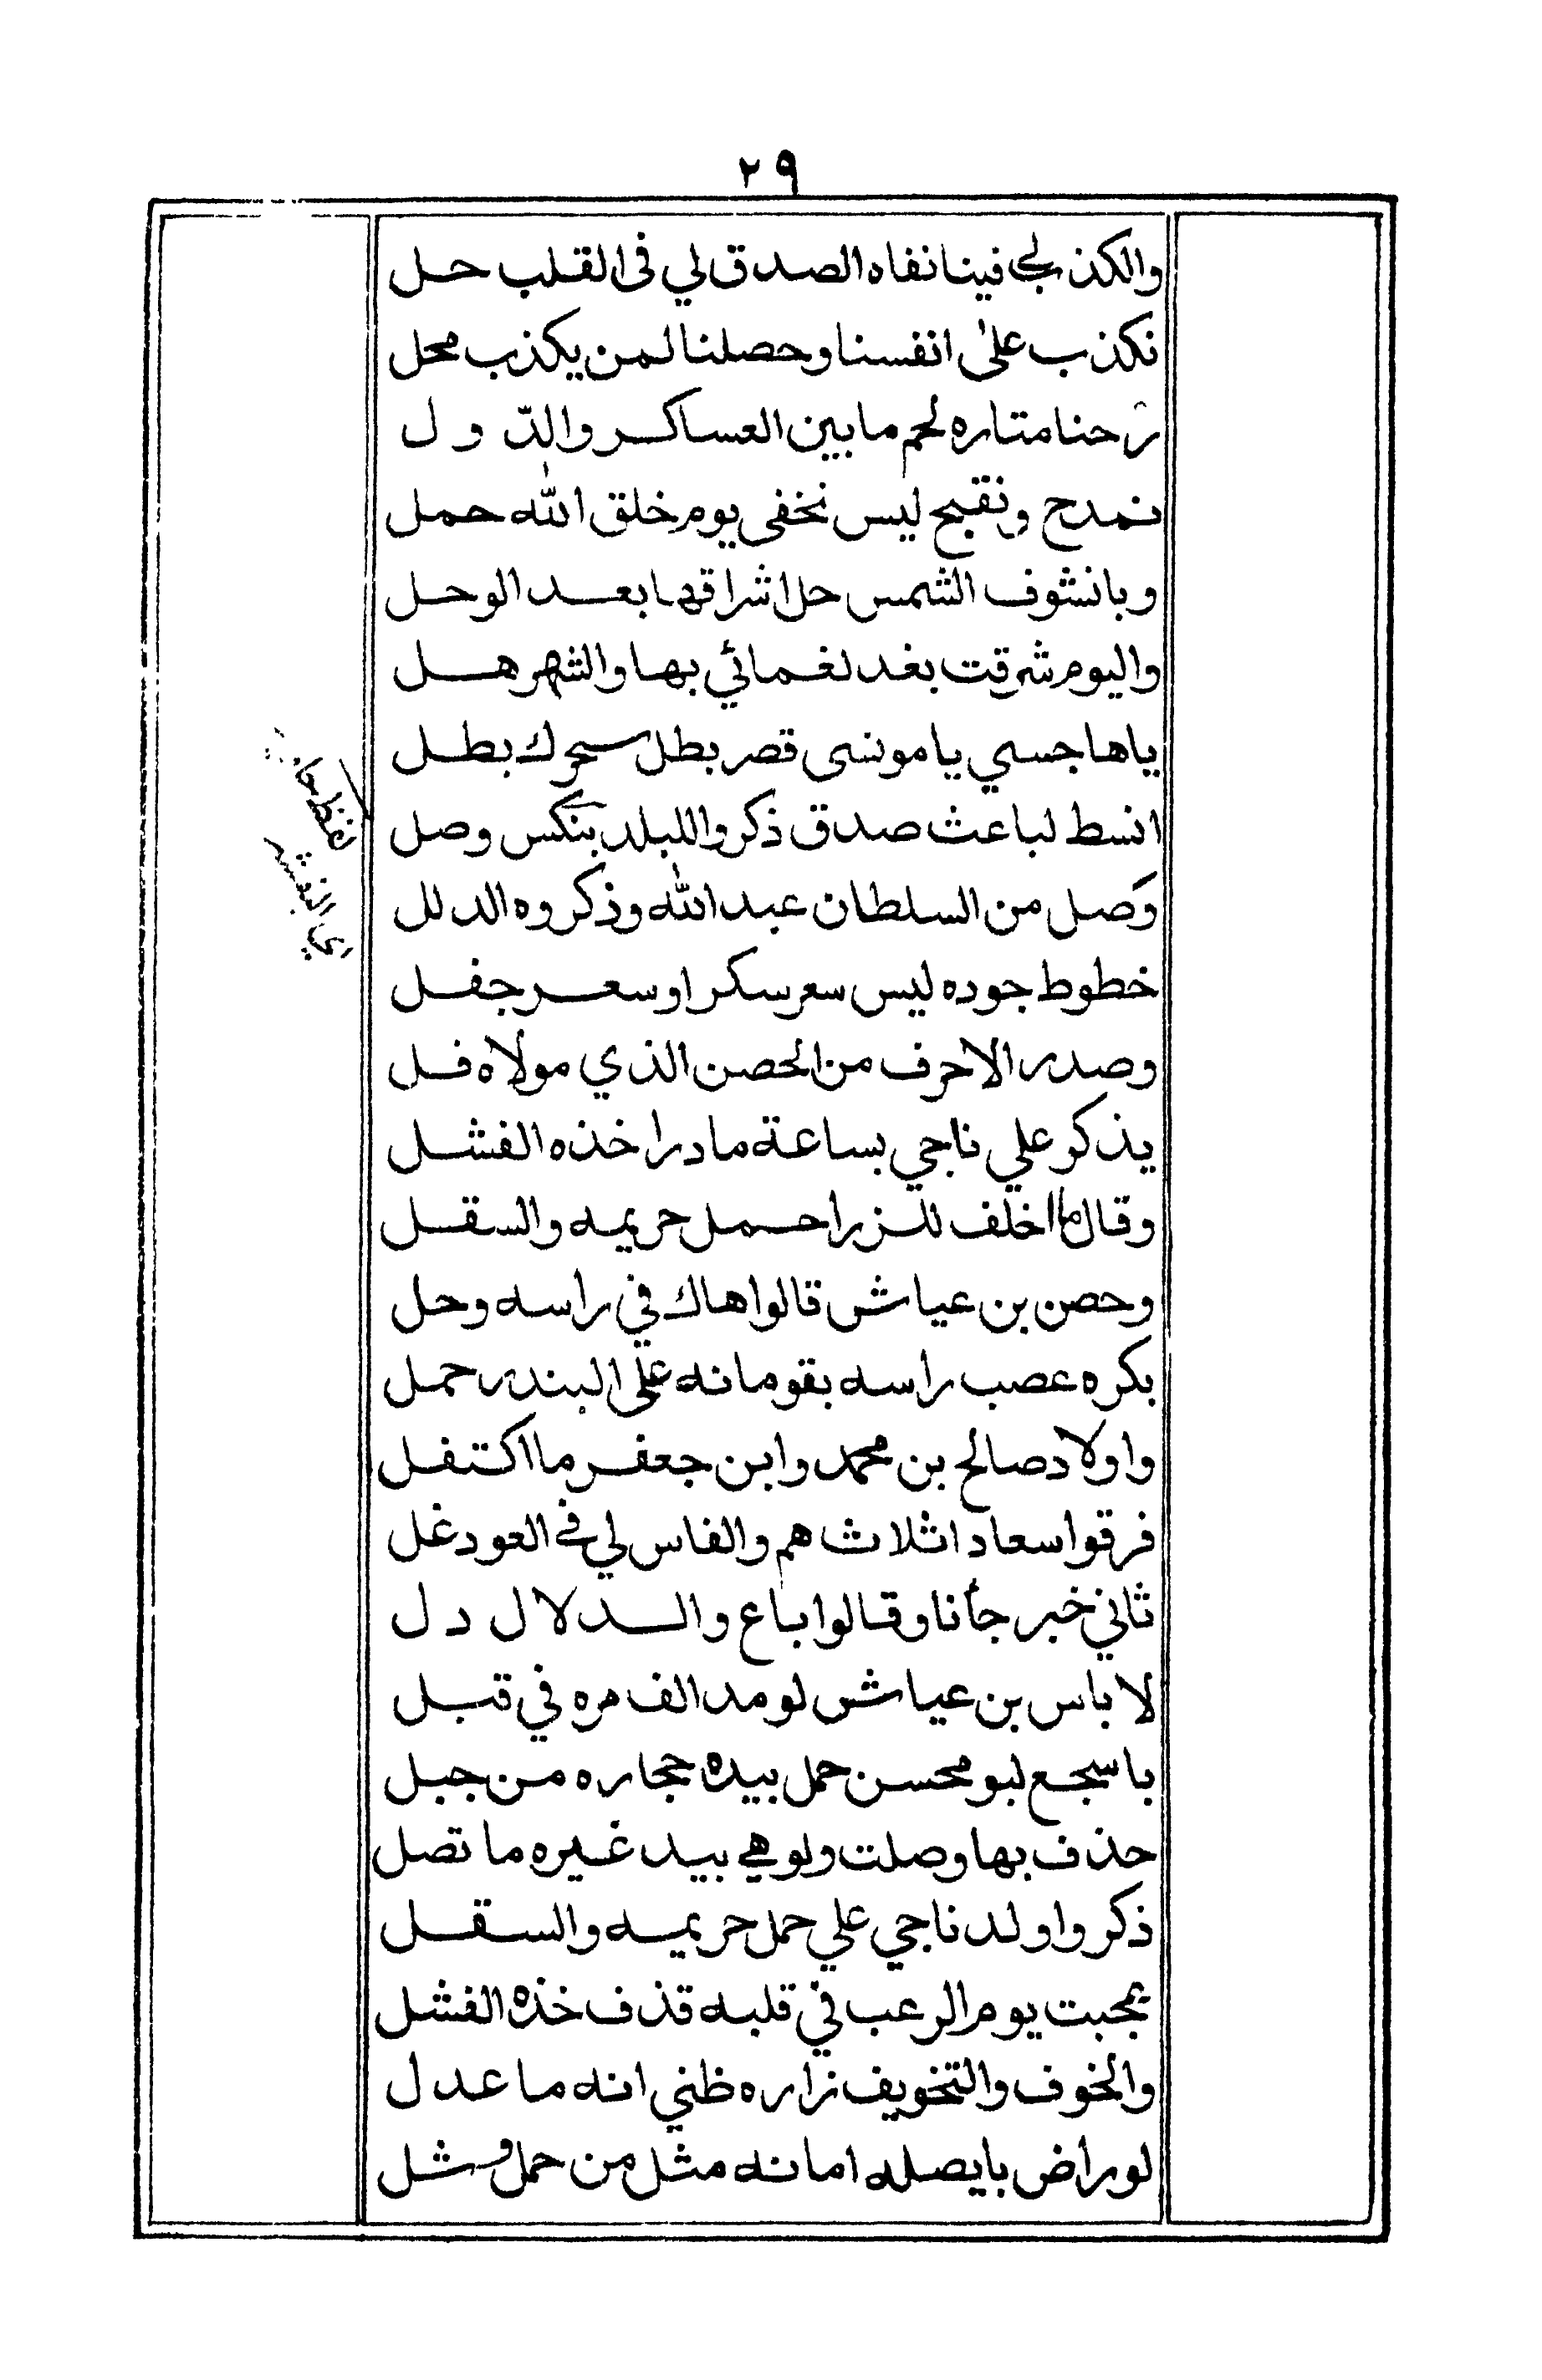 ٢٩
والكذب لجي فينا نفاه الصدق لي في القلب حل
نكذب على انفسنا وحصلنا لمن يكذب محل
رحنا متاره لحم ما بين العساكر والدّول
نمدح ونقبح ليس نخفى يوم خلق الله حمل
وبانشوف الشمس حل اشراقها بعد الوحل
واليوم شرقت بغد لغمائي بها والشهر هل
ياهاجسي يا مونسى قصر بطل سحرك بطل
انسط لباعث صدق ذكروا للبلد بنكس وصل
وصل من السلطان عبد الله وذكروه الدلل
خطوط جوده ليس سعر سكر اوسعر جفل
وصدر الاحرف من الحصن الذي مولاه فل
يذكر علي ناجي بساعة مادرا خذه الفشل
وقال ما اخلف للزرا حمل حريمه والسقل
وحصن بن عياش قالوا هاك في راسه وحل
بكره عصب راسه بقومانه على البندر حمل
واولاد صالح بن محمد وابن جعفر ما اكتفل
فرقوا سعاد اثلاث هم والفاس لي في العود غل
ثاني خبر جأنا وقالوا باع والدلال دل
لا باس بن عياش لو مد الف مره في قبل
باسجع لبو محسن حمل بيده حجاره من جبل
حذف بها وصلت ولو هي بيد غيره ما تصل
ذكروا ولد ناجي علي حمل حريمه والسقل
عجبت يوم الرعب في قلبه قذف خذه الفشل
والخوف والتخويف نزاره ظني انه ما عدل
لوراض بايصله امانه مثل من حمل وشل